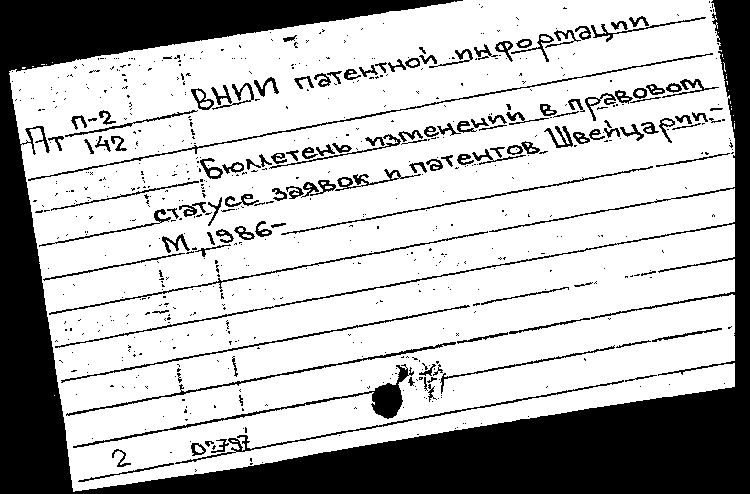 ВНИИ патентной информации
Пт п-2
142
Бюллетень изменений в правовом
статусе заявок и патентов Швейцарии.-
М.,1986-
2 02797